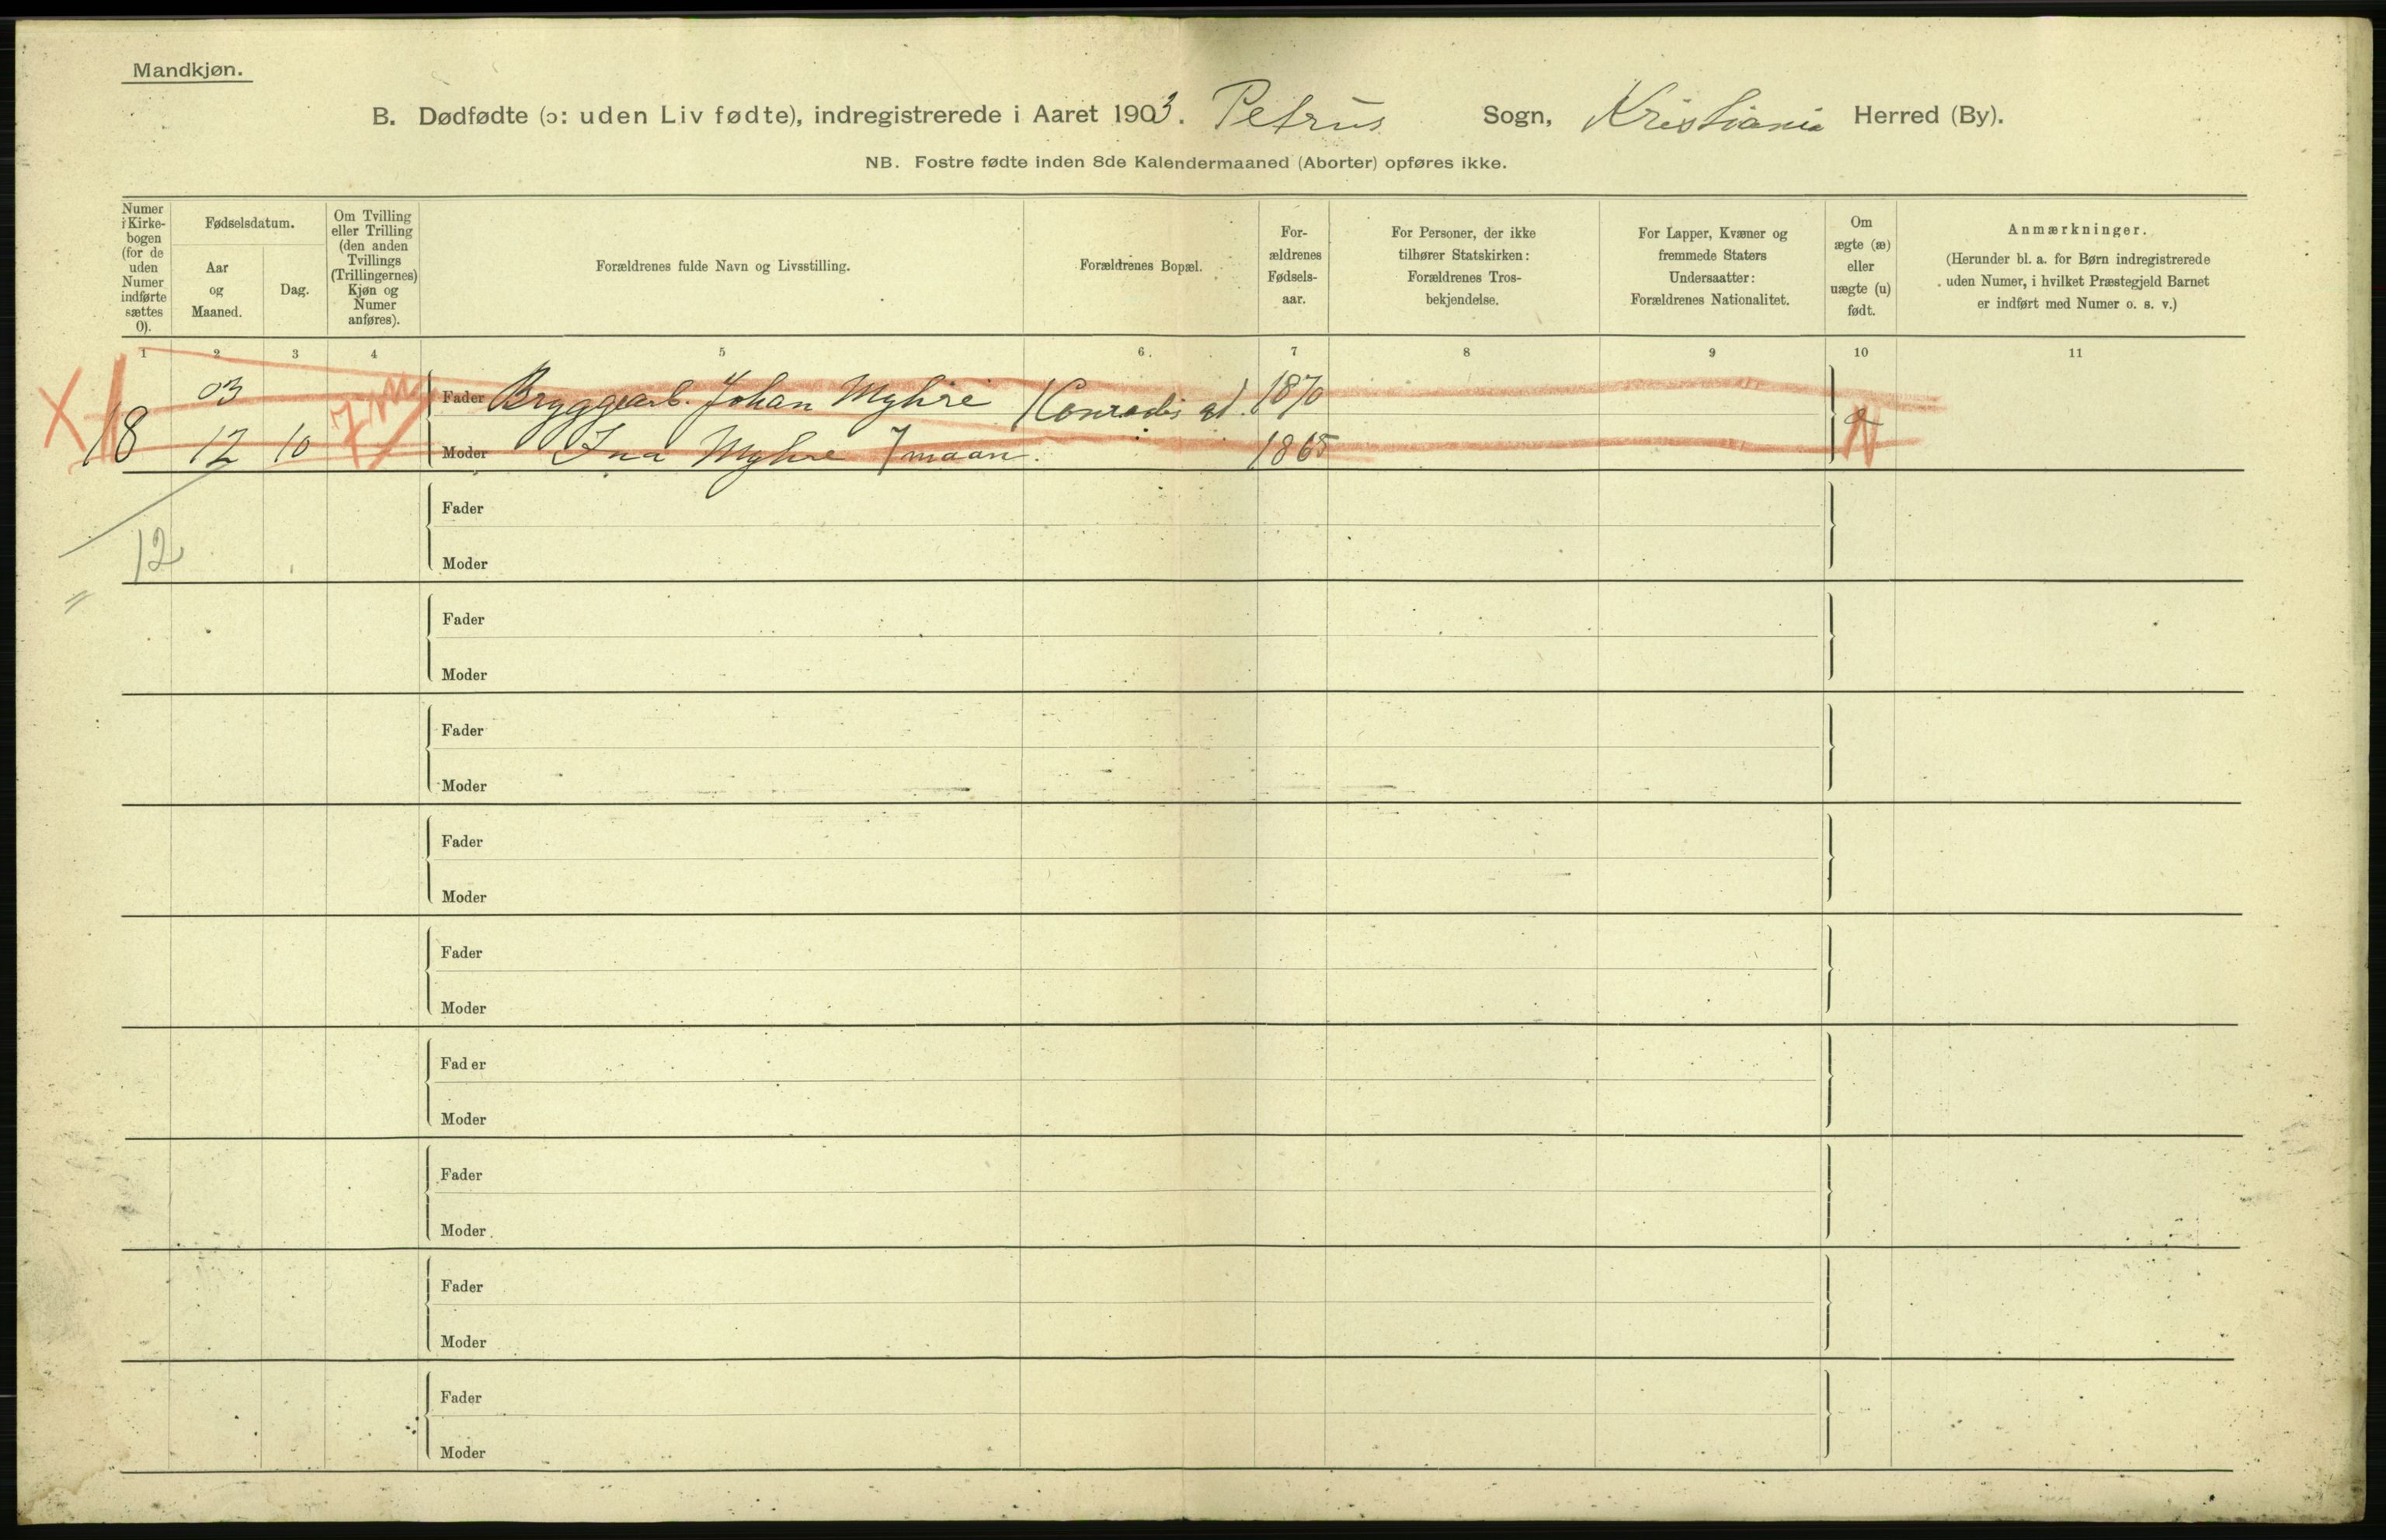 Mandkjøn.
B. Dødfødte (ɔ: uden Liv fødte), indregistrerede i Aaret 1903. Petrus Sogn, Kristiania Herred (By).
NB. Fostre fødte inden 8de Kalendermaaned (Aborter) opføres ikke.
Numer i Kirke-bogen (for de uden Numer indførte sættes 0).
Fødselsdatum.
Aar og Maaned.
Dag.
Om Tvilling eller Trilling (den anden Tvillings (Trillingernes) Kjøn og Numer anføres).
Forældrenes fulde Navn og Livsstilling.
Forældrenes Bopæl.
For-ældrenes Fødsels-aar.
For Personer, der ikke tilhører Statskirken: Forældrenes Tros-bekjendelse.
For Lapper, Kvæner og fremmede Staters Undersaatter: Forældrenes Nationalitet.
Om ægte (æ) eller uægte (u) født.
Anmærkninger.
(Herunder bl. a. for Børn indregistrerede uden Numer, i hvilket Præstegjeld Barnet er indført med Numer o. s. v.)
1 2 3 4 5 6. 7 8 9 10 11
X 03 7 m Fader Bryggearb. Johan Myhre Conradis gd. 1870
18 12 10 Moder Ina Myhre 7 maan. 1865
Fader
12
Moder
Fader
Moder
Fader
Moder
Fader
Moder
Fader
Moder
Fader
Moder
Fader
Moder
Fader
Moder
Fader
Moder